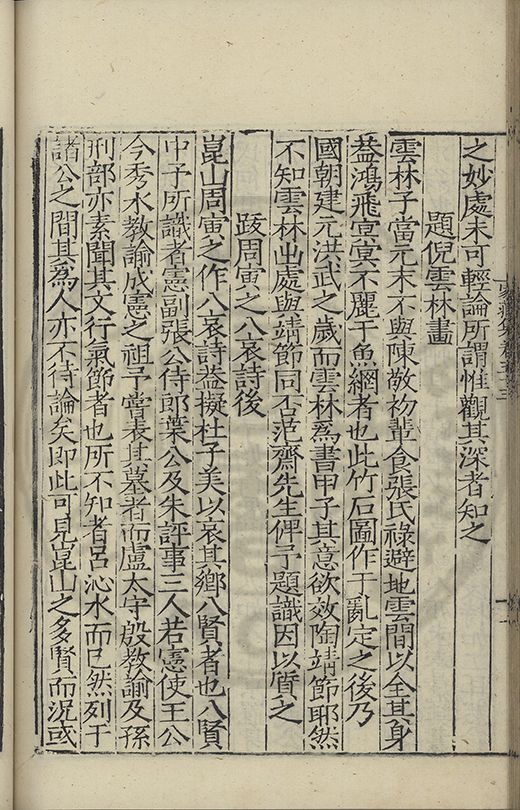 之妙處未可輕論所謂惟觀其深者知之
題倪雲林畫
雲林子當元末不與陳敬初輩食張氏祿避地雲間以全其身
葢鴻飛冥冥不麗于魚網者也此竹石圖作于亂定之後乃
國朝建元洪武之歲而雲林爲書甲子其意欲效陶靖節耶然
不知雲林出處與靖節同否范齋先生俾予題識因以質之
跋周寅之八哀詩後
崑山周寅之作八哀詩葢擬杜子美以哀其鄉八賢者也八賢
中予所識者憲副張公侍郎葉公及朱評事三人若憲使王公
今秀水教諭成憲之祖予嘗表其墓者而盧太守殷教諭及孫
刑部亦素聞其文行氣節者也所不知者呂沁水而已然列于
諸公之間其爲人亦不待論矣即此可見崑山之多賢而況或